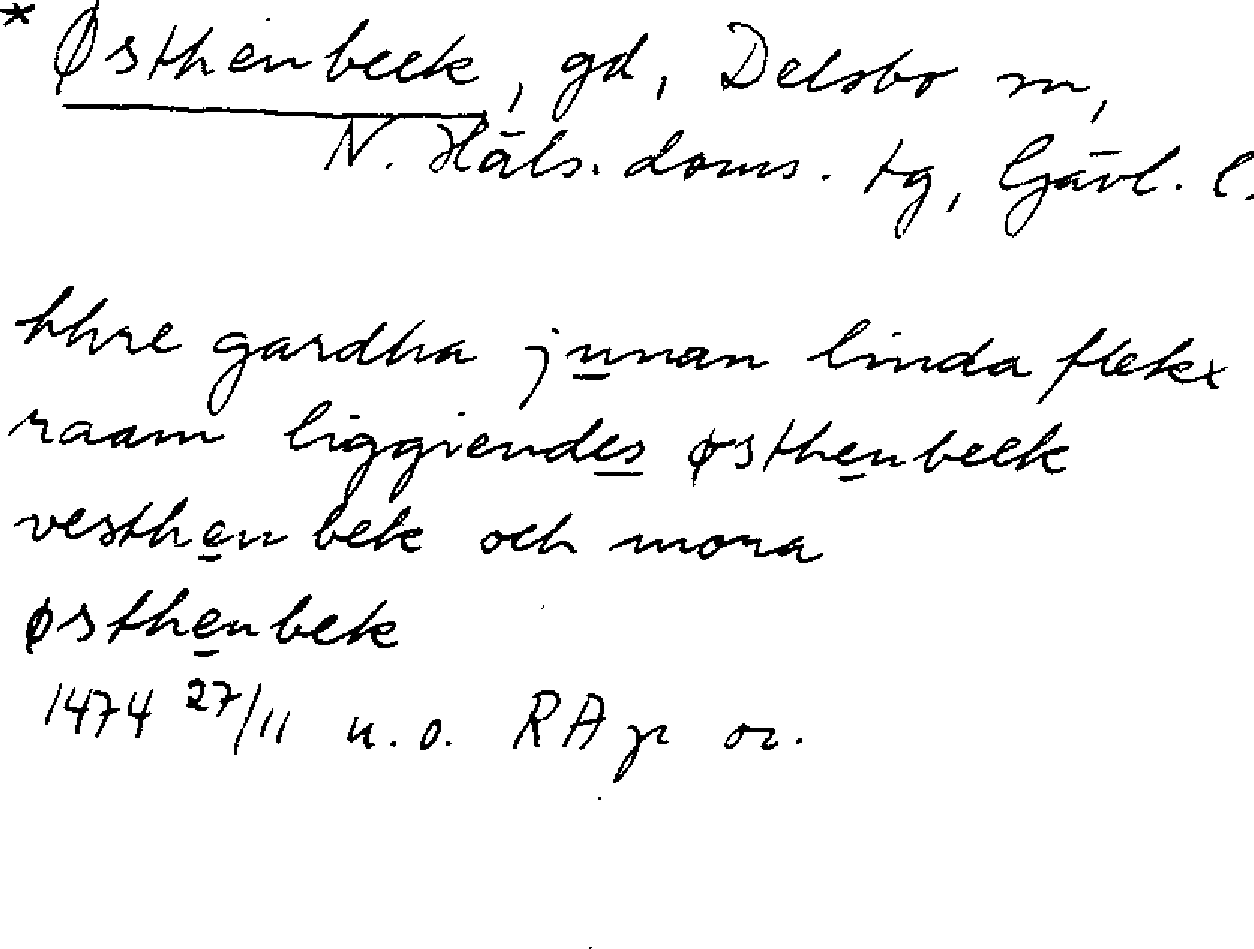 * Østhenbeek, gd, Delsbo sn,
N. Häls. doms. tg, Gävl. l.
thre gardha junan linda flekx
raam liggiendes østhenbeek
vesthen bek och mora
østhenbek
1474 27/11 u.o. RAp or.